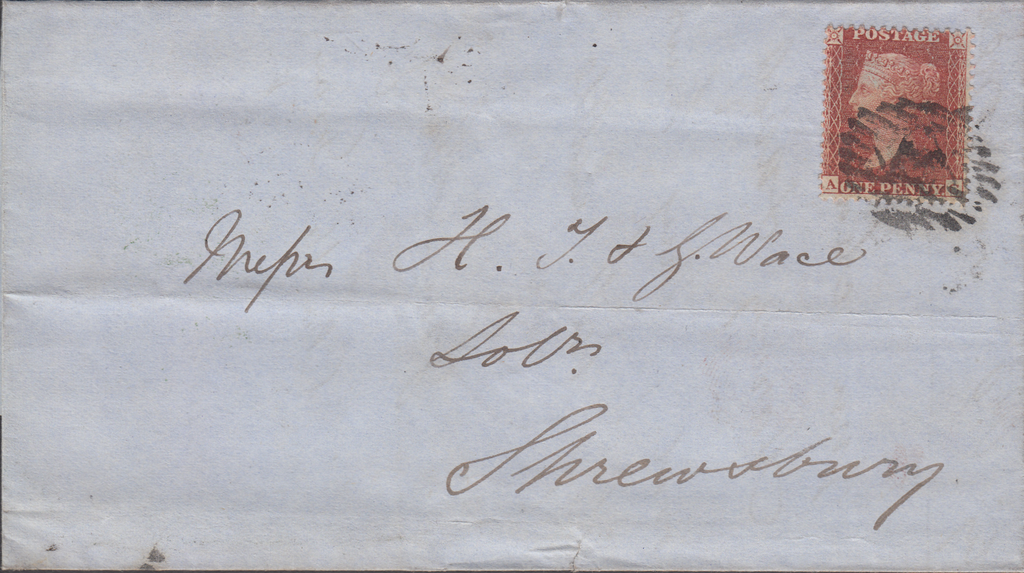 POSTAGE
A ONE PENNY
Messrs H. T. & G. Wace
Solrs
Shrewsbury